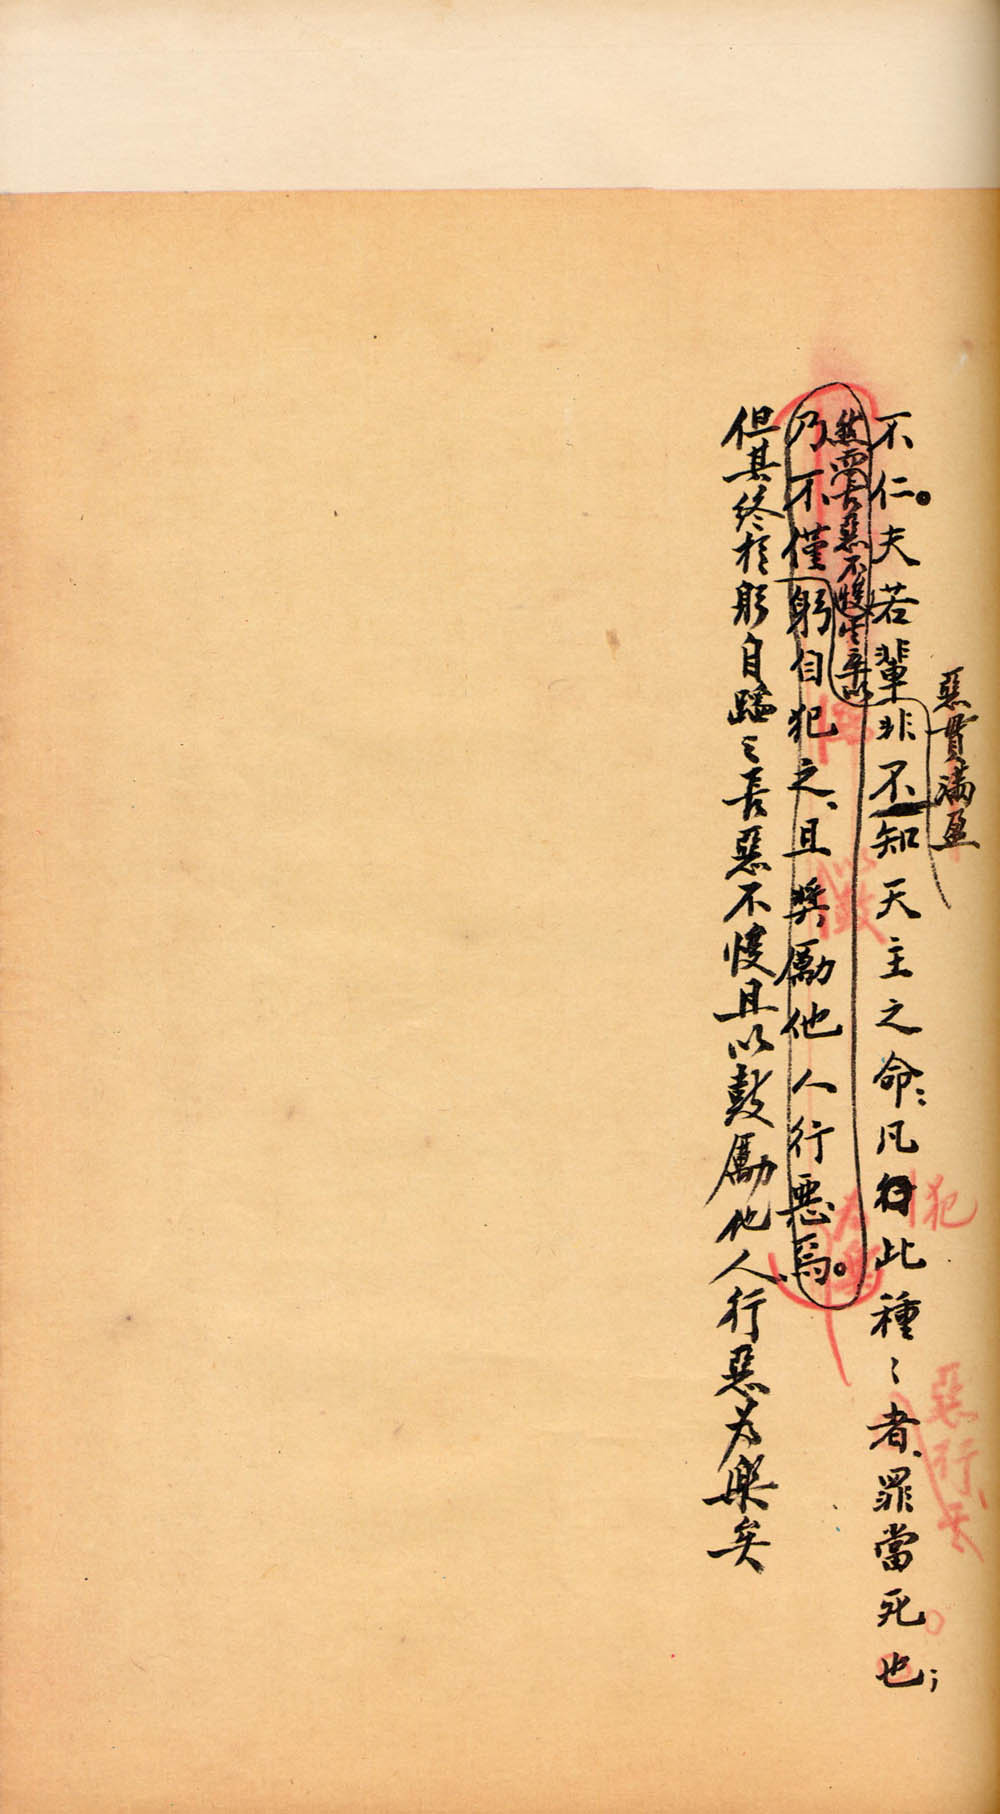 惡貫滿盈
犯
惡行、天
不仁。夫若輩非不知天主之命；凡行此種々者、罪當死也；
然而長惡不悛
乃不僅躬自犯之、且獎勵他人行惡焉。
為樂
但其終於躬自蹈之長惡不悛且以鼓勵他人行惡為樂矣